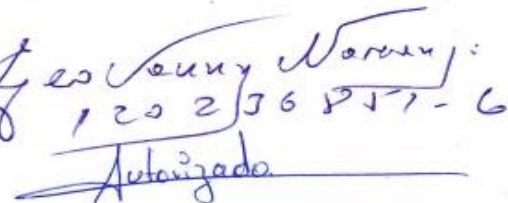 Geovanny Naranj.
120236851-6
Autorizado